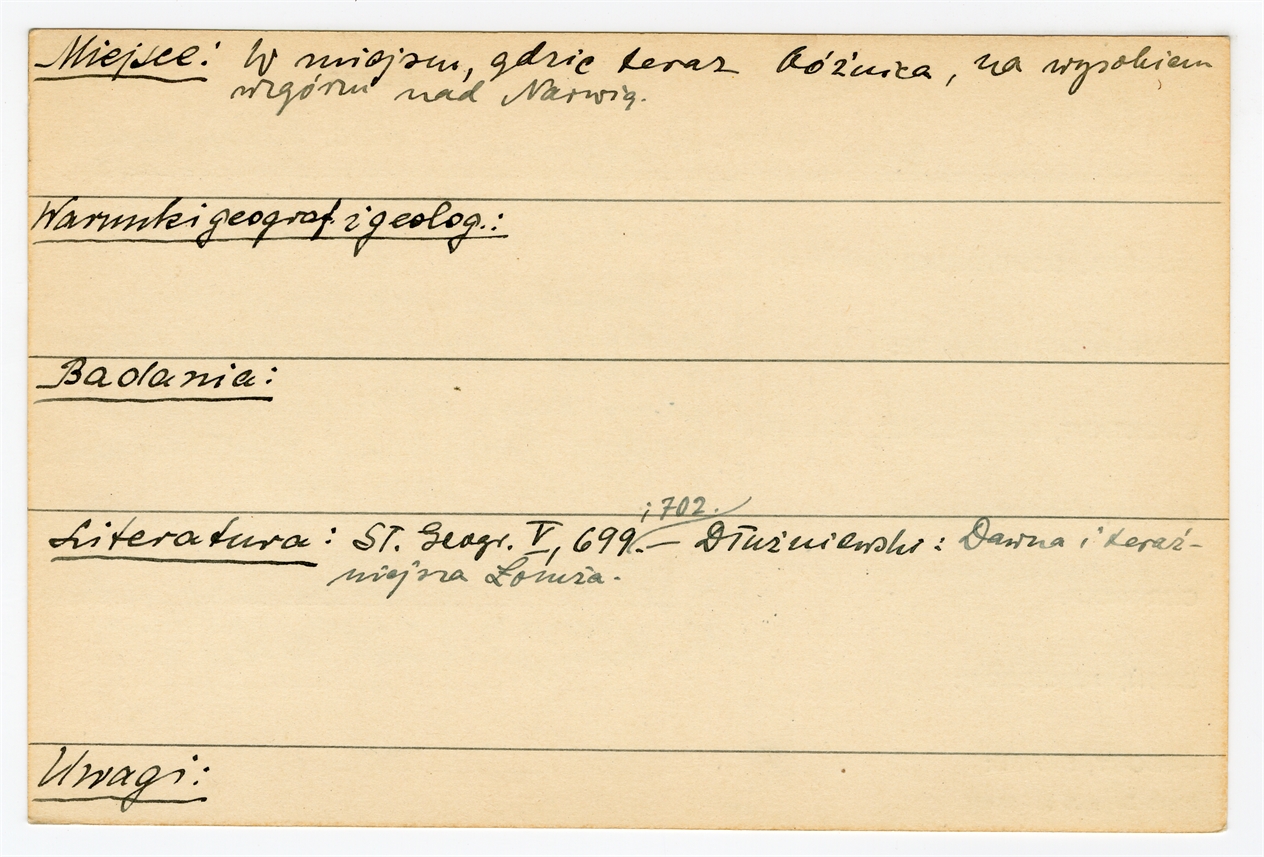 Miejsce: W miejscu, gdzie teraz bóżnica, na wysokiem
wzgórzu nad Narwią.
Warunki geograf. i geolog.:
Badania:
; 702.
Literatura: Sł. Geogr. V, 699. – Dłużniewski: Dawna i teraź-
niejsza Łomża.
Uwagi: